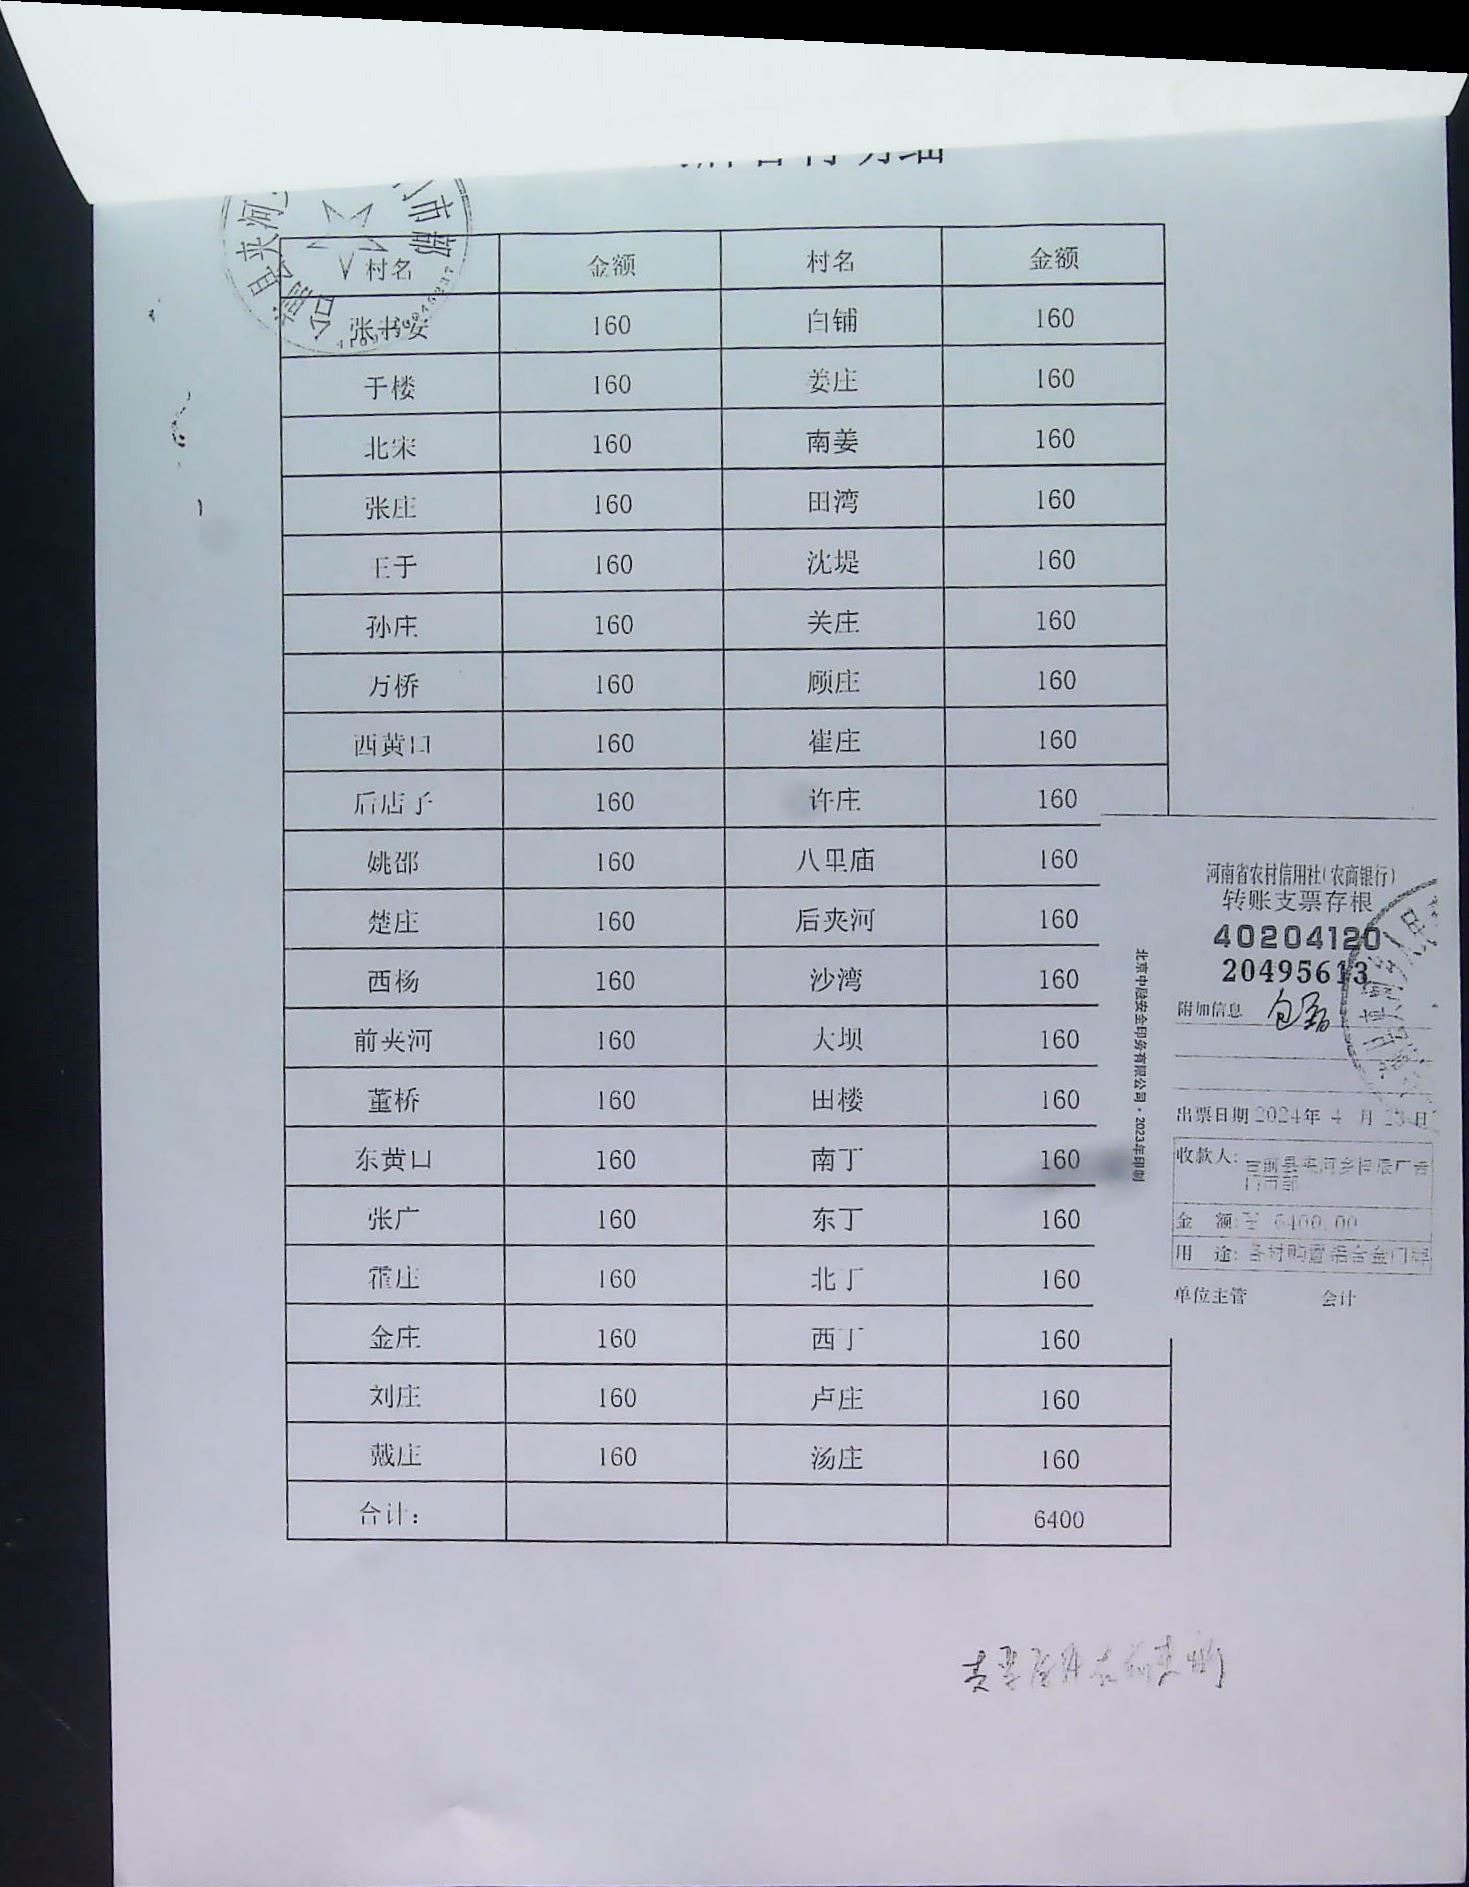 明细
村名 金额 村名 金额
张书安 160 白铺 160
于楼 160 姜庄 160
北宋 160 南姜 160
张庄 160 田湾 160
王于 160 沈堤 160
孙庄 160 关庄 160
万桥 160 顾庄 160
西黄口 160 崔庄 160
后店子 160 许庄 160
姚邵 160 八里庙 160
楚庄 160 后夹河 160
西杨 160 沙湾 160
前夹河 160 大坝 160
董桥 160 田楼 160
东黄口 160 南丁 160
张广 160 东丁 160
霍庄 160 北丁 160
金庄 160 西丁 160
刘庄 160 卢庄 160
戴庄 160 汤庄 160
合计： 6400
河南省农村信用社(农商银行)
转账支票存根
40204120
20495613
附加信息
出票日期 2024年 4 月 23 日
收款人: 台前县夹河乡梓晨广告
门市部
金 额: ¥ 6400.00
用 途: 各村购置铝合金门牌
单位主管 会计
北京中融安全印务有限公司·2023年印制